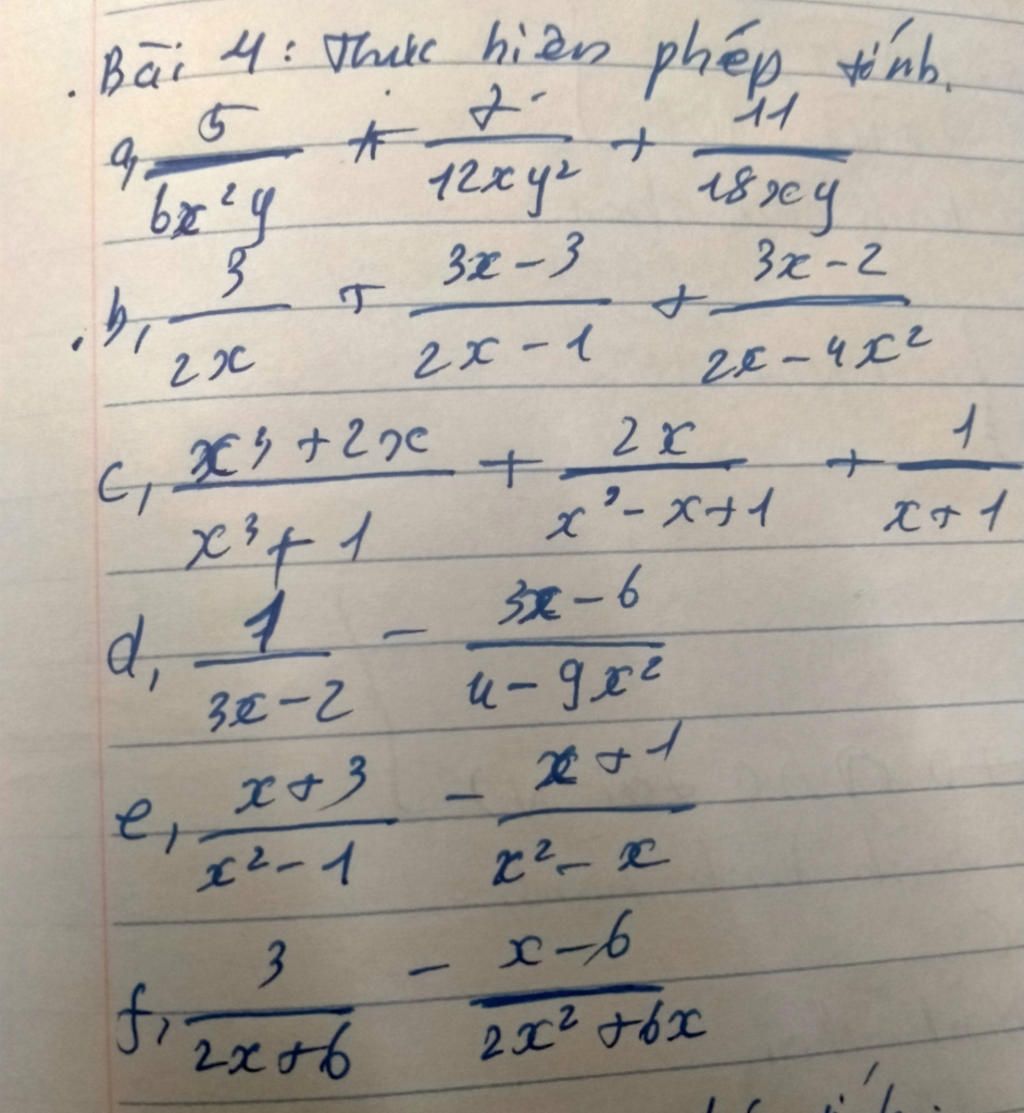 Bài 4: Thực hiện phép tính.
a, 5/(6x²y) + 7/(12xy²) + 11/(18xy)
b, 3/(2x) + (3x-3)/(2x-1) + (3x-2)/(2x-4x²)
c, (x³+2x)/(x³+1) + 2x/(x²-x+1) + 1/(x+1)
d, 1/(3x-2) - (3x-6)/(4-9x²)
e, (x+3)/(x²-1) - (x+1)/(x²-x)
f, 3/(2x+6) - (x-6)/(2x²+6x)